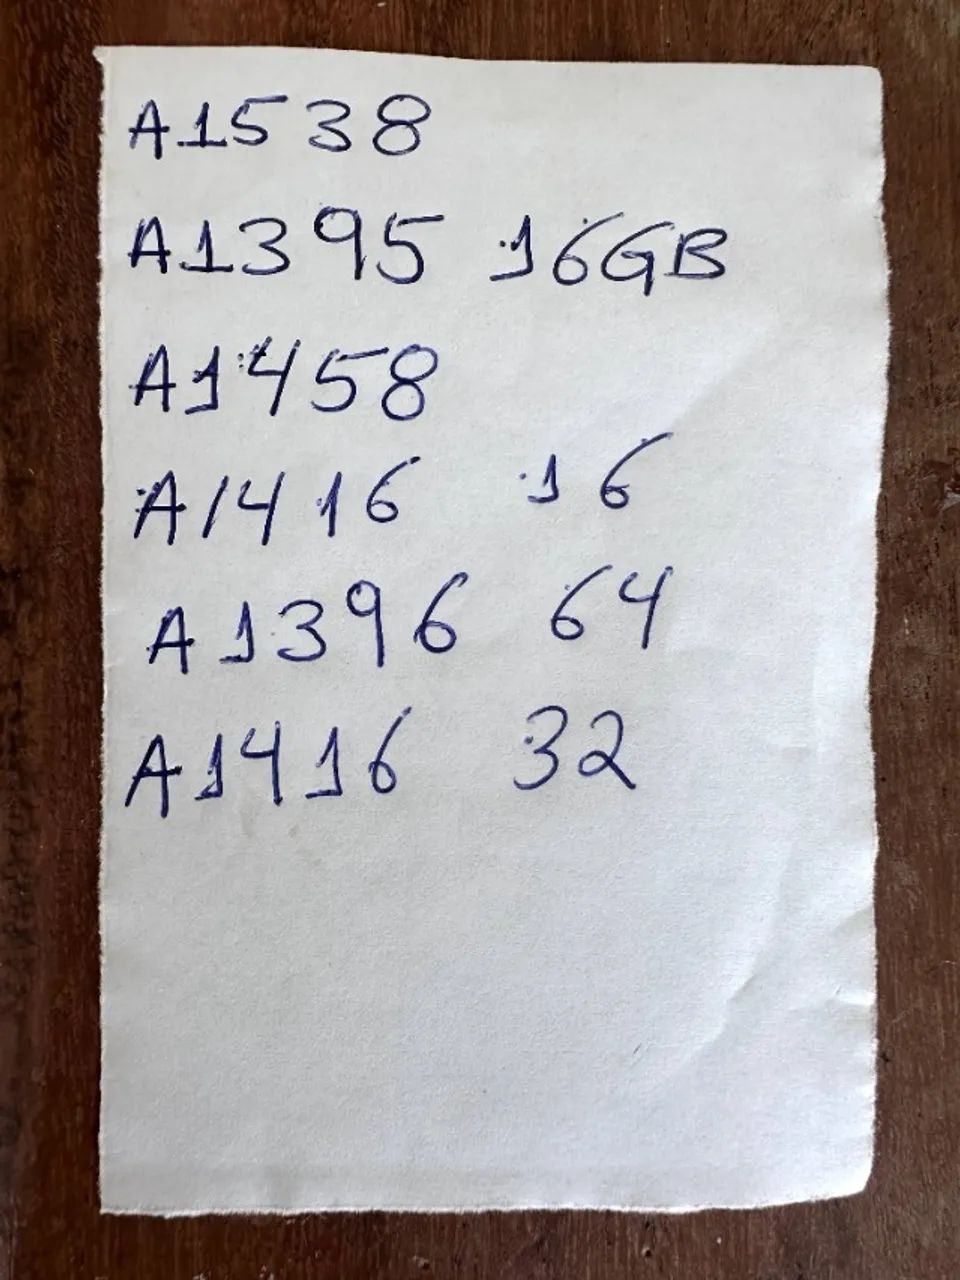 A1538
A1395 16GB
A1458
A1416 16
A1396 64
A1416 32